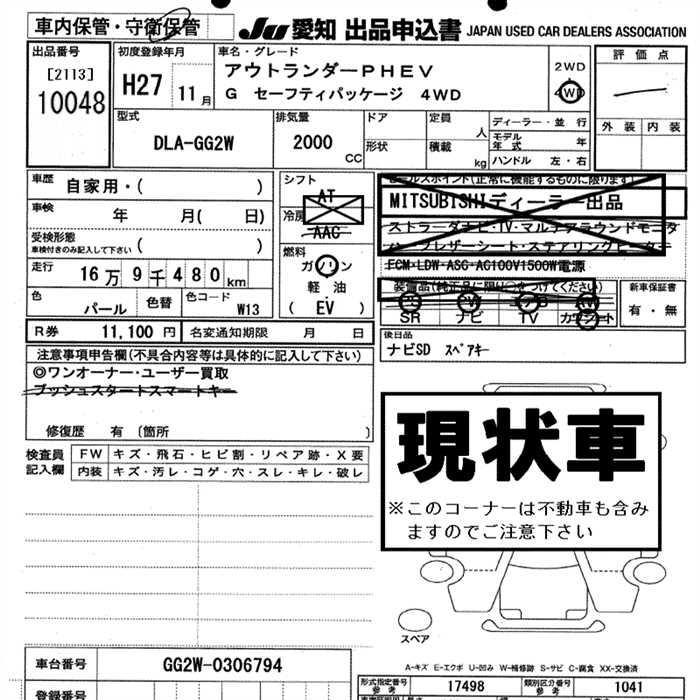 車内保管・守衛保管
JU 愛知 出品申込書 JAPAN USED CAR DEALERS ASSOCIATION
出品番号
[2113]
10048
初度登録年月
H27 11月
車名・グレード
アウトランダーPHEV
G セーフティパッケージ 4WD
2WD
4WD
評価点
外装 内装
型式
DLA-GG2W
排気量
2000
CC
ドア
形状
定員
人
積載
kg
ディーラー・並行
モデル年式 年
ハンドル 左・右
車歴 自家用・( )
車検 年 月( 日)
受検形態
車検付きのみ記入して下さい ( )
走行 16万9千480km
色 パール 色替 色コード W13
R券 11,100円 名変通知期限 月 日
シフト
AT
冷房
AAC
燃料
ガソリン
軽油
( EV )
セールスポイント(正常に機能するものに限ります)
MITSUBISHIディーラー出品
ストラーダナビ・TV・マルチアラウンドモニタ
ハーフレザーシート・ステアリングヒーター
FCM・LDW・ASC・AC100V1500W電源
装備品(純正品に限り○をつけてください)
SR ナビ TV カワシート
新車保証書
有・無
後日品
ナビSD スペアキー
注意事項申告欄(不具合内容等は具体的に記入して下さい)
◎ワンオーナー・ユーザー買取
プッシュスタートスマートキー
修復歴 有 (箇所 )
検査員記入欄
FW キズ・飛石・ヒビ割・リペア跡・X要
内装 キズ・汚レ・コゲ・穴・スレ・キレ・破レ
現状車
※このコーナーは不動車も含み
ますのでご注意下さい
スペア
A-キズ E-エクボ U-凹み W-補修跡 S-サビ C-腐食 XX-交換済
車台番号 GG2W-0306794
登録番号
形式指定番号 参考 17498 類別区分番号 参考 1041